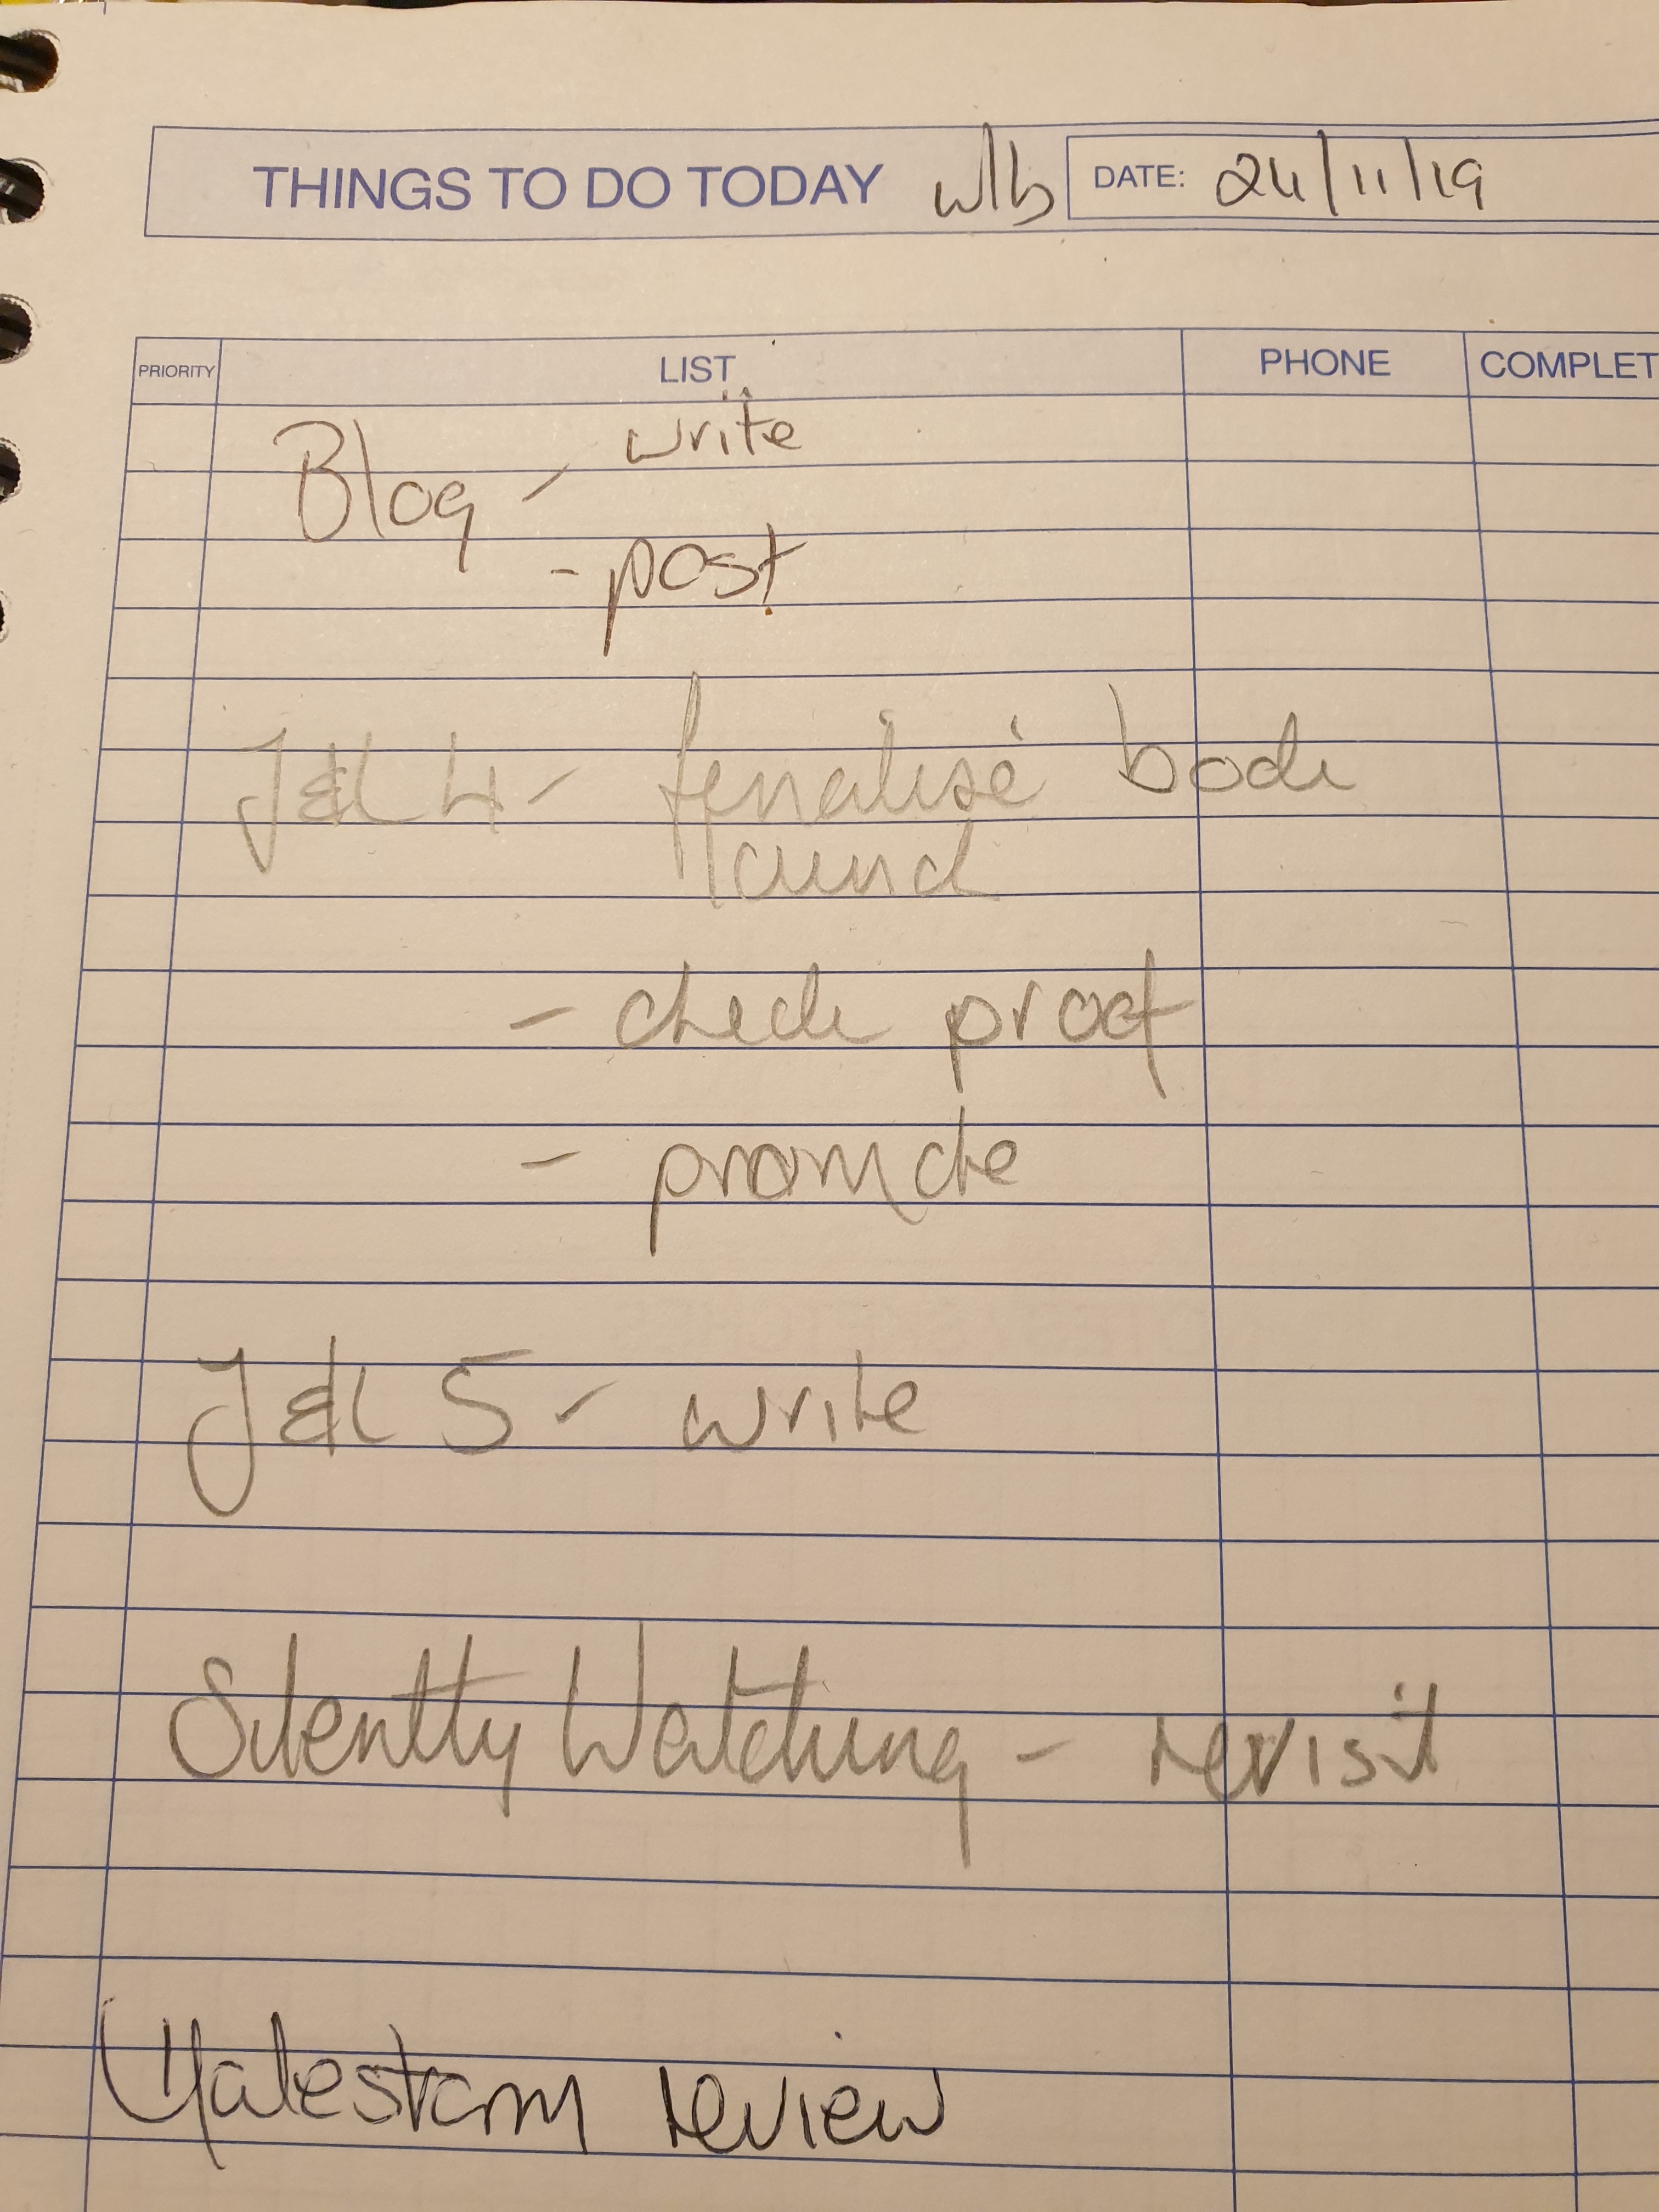 THINGS TO DO TODAY w/b DATE: 24/11/19
PRIORITY LIST PHONE COMPLET
Blog - write
- post
J&L 4 - finalise book
launch
- check proof
- promote
J&L 5 - write
Silently Watching - revisit
review